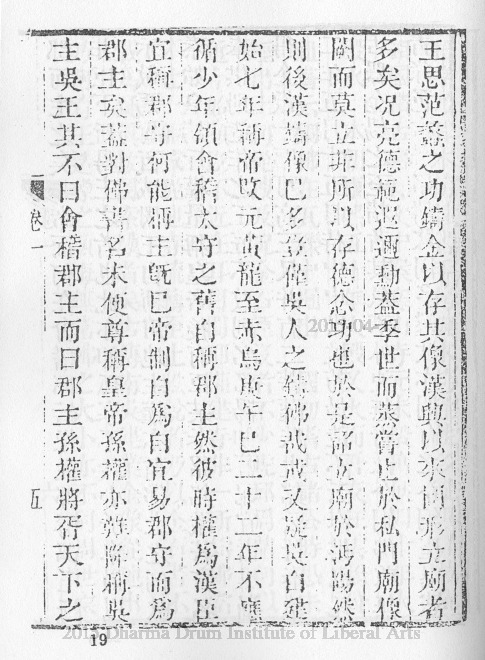 王思范蠡之功鑄金以存其像漢興以來圖形立廟者
多矣況亮德範遐邇勳蓋季世而蒸嘗止於私門廟像
闕而莫立非所以存德念功也於是詔立廟於沔陽然
則後漢鑄像已多豈僅吳人之鑄佛哉或又疑吳自建
始七年稱帝改元黃龍至赤烏庚午已二十二年不應
循少年領會稽太守之舊自稱郡主然彼時權為漢臣
宜稱郡守何能稱主既已帝制自為自宜易郡守而為
郡主矣蓋對佛書名未便尊稱皇帝孫權亦難降稱吳
主吳王其不曰會稽郡主而曰郡主孫權將胥天下之
卷一
五
19
Dharma Drum Institute of Liberal Arts